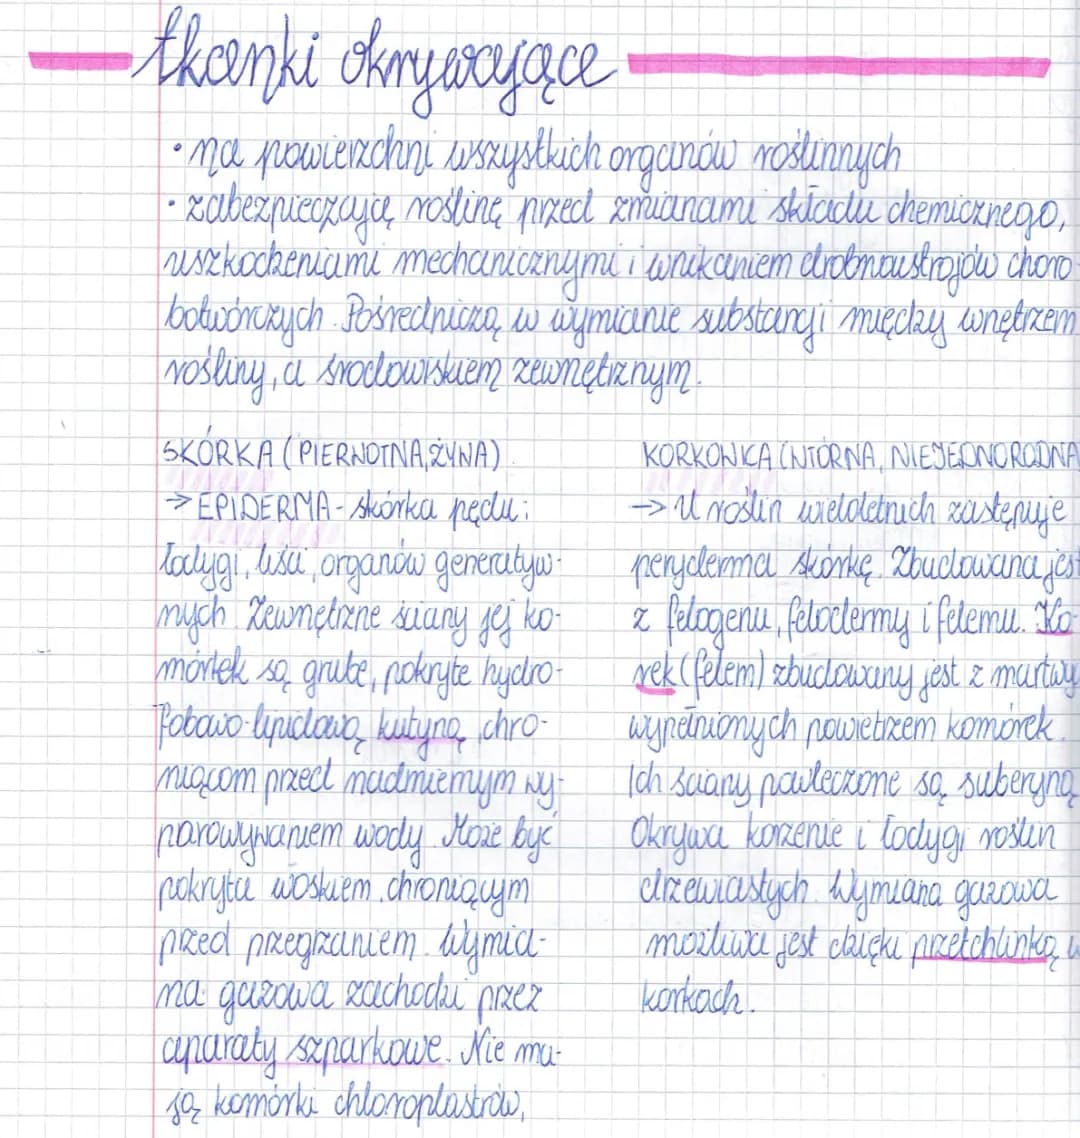 tkanki okrywające
• na powierzchni wszystkich organów roślinnych
• zabezpieczają roślinę przed zmianami składu chemicznego,
uszkodzeniami mechanicznymi i wnikaniem drobnoustrojów choro-
botwórczych. Pośredniczą w wymianie substancji między wnętrzem
rośliny, a środowiskiem zewnętrznym.
SKÓRKA (PIERWOTNA, ŻYWA)
→ EPIDERMA - skórka pędu:
łodygi, liści, organów generatyw-
nych. Zewnętrzne ściany jej ko-
mórek są grube, pokryte hydro-
fobowo-lipidową kutyną, chro-
niącom przed nadmiernym wy-
parowywaniem wody. Może być
pokryta woskiem chroniącym
przed przegrzaniem. Wymia-
na gazowa zachodzi przez
aparaty szparkowe. Nie ma-
ją komórki chloroplastrów,
KORKOWICA (WTÓRNA, NIEJEDNORODNA
→ U roślin wieloletnich zastępuje
peryderma skórkę. Zbudowana jest
z felogenu, felodermy i felemu. Ko-
rek (felem) zbudowany jest z martwy
wypełnionych powietrzem komórek.
Ich ściany powleczone są suberyną
Okrywa korzenie i łodygi roślin
drzewiastych. Wymiana gazowa
możliwa jest dzięki przetchlinką w
korkach.